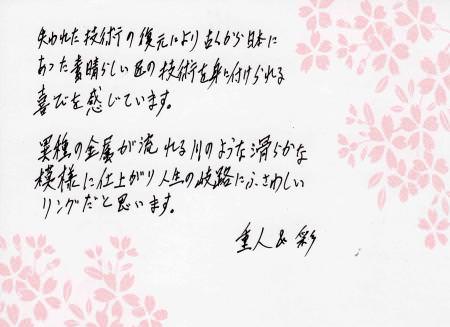 失われた技術の復元により古くから日本に
あった素晴らしい匠の技術を身に付けられる
喜びを感じています。
異種の金属が流れる川のような滑らかな
模様に仕上がり人生の岐路にふさわしい
リングだと思います。
重人& 彩